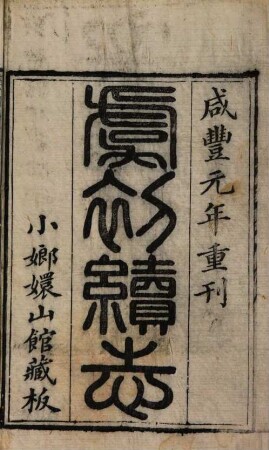 咸豐元年重刊
虞初續志
小嫏嬛山館藏板